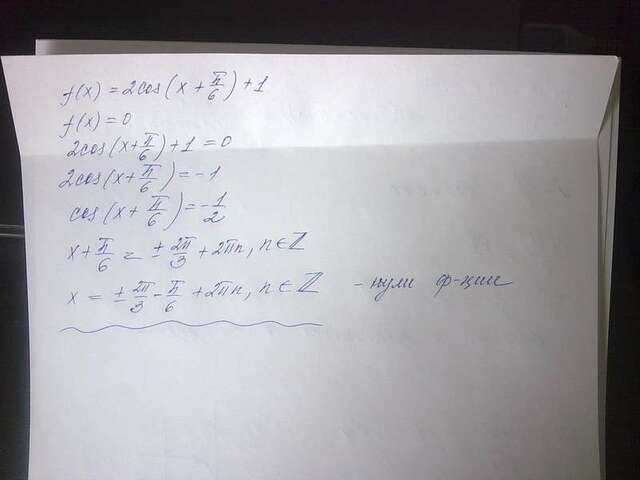 f(x) = 2cos(x + π/6) + 1
f(x) = 0
2cos(x + π/6) + 1 = 0
2cos(x + π/6) = -1
cos(x + π/6) = -1/2
x + π/6 = ± 2π/3 + 2πn, n ∈ ℤ
x = ± 2π/3 - π/6 + 2πn, n ∈ ℤ - нули ф-ции